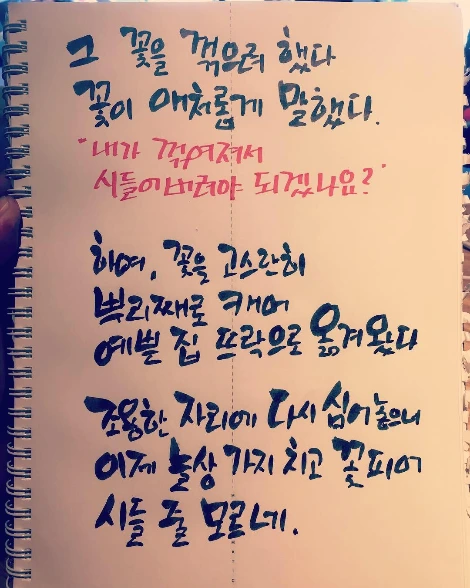 그 꽃을 꺾으려 했다
꽃이 애처롭게 말했다.
"내가 꺾여져서
시들어버려야 되겠나요?"
하여, 꽃을 고스란히
뿌리째로 캐어
예쁜 집 뜨락으로 옮겨왔다
조용한 자리에 다시 심어놓으니
이제 늘상 가지 치고 꽃피어
시들 줄 모르네.